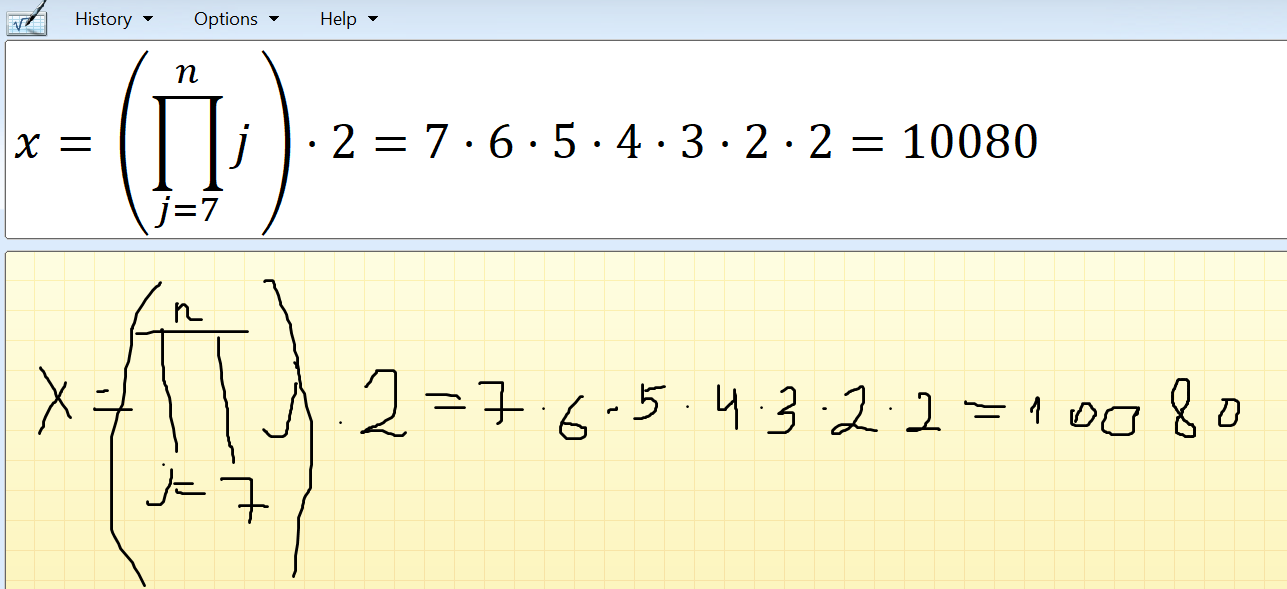 History Options Help
x = (∏_{j=7}^{n} j) · 2 = 7 · 6 · 5 · 4 · 3 · 2 · 2 = 10080
x = (∏_{j=7}^{n} j) · 2 = 7 · 6 · 5 · 4 · 3 · 2 · 2 = 10080